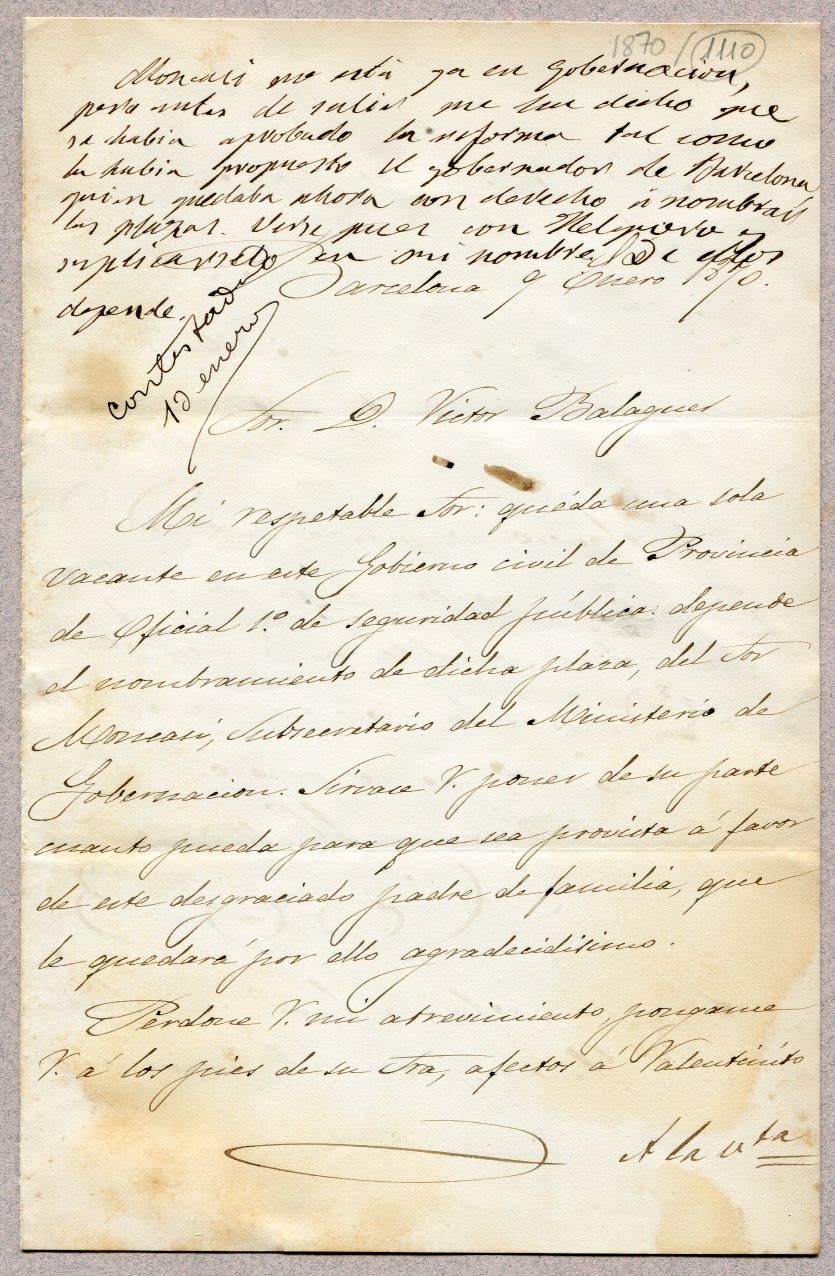 1870 / 1110
Moncasi no está ya en gobernacion,
pero antes de salir me ha dicho que
se habia aprobado la reforma tal como
la habia propuesto el gobernador de Barcelona
quien quedaba ahora con derecho á nombrar
las plazas. Verse pues con Helguero y
suplicarselo en mi nombre. De ellos
depende.
Barcelona 9 Enero 1870.
contestado
12 enero
Sor. D. Victor Balaguer
Mi respetable Sor: quéda una sola
vacante en este Gobierno civil de Provincia
de Oficial 1.º de seguridad pública: depende
el nombramiento de dicha plaza, del Sor
Moncasi, Subsecretario del Ministerio de
Gobernacion. Sirvase V. poner de su parte
cuanto pueda para que sea provista á favor
de este desgraciado padre de familia, que
le quedará por ello agradecidisimo.
Perdone V. mi atrevimiento, pongame
V. á los pies de su Sra, afectos á Valentinito
A la vta